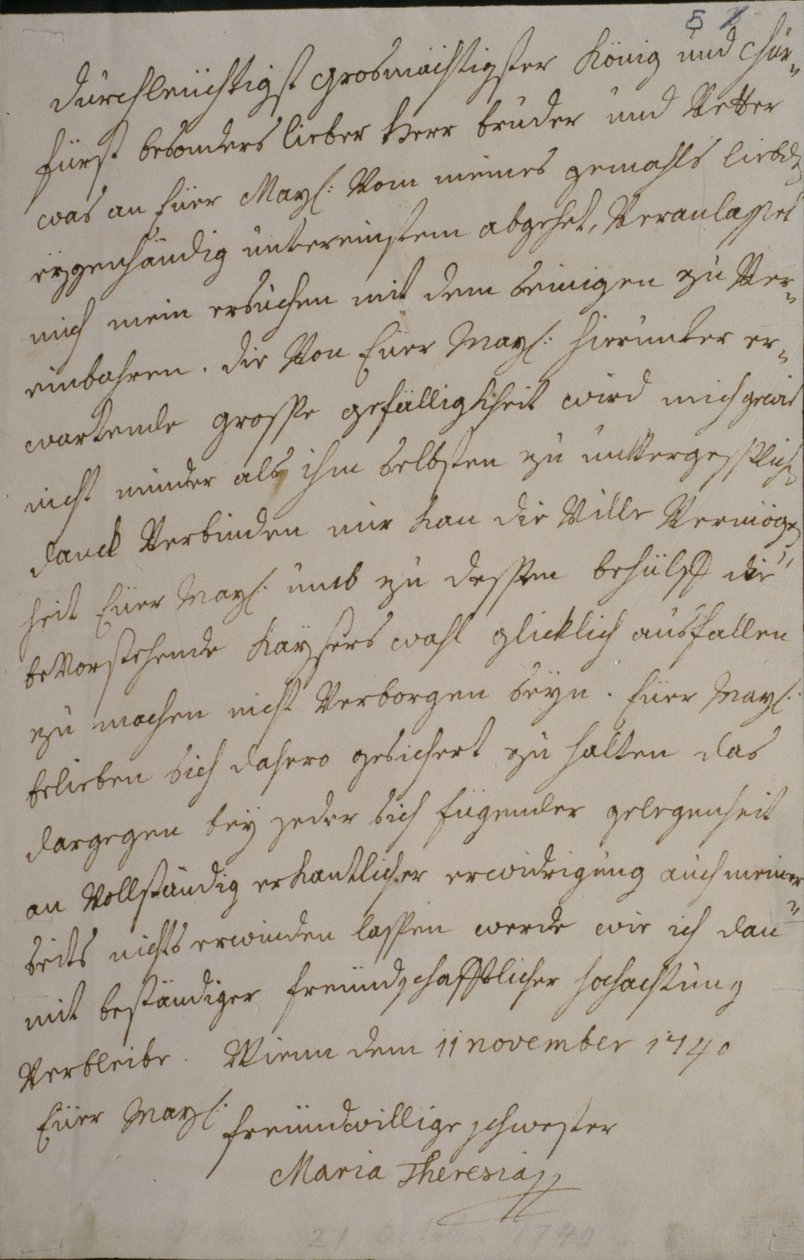 5
durchleüchtigst grosmächtigster König und Chur-
fürst besonders lieber Herr bruder und Vetter
was an Eüer May: Vom meines gemahls liebd
eygenhändig untereinstem abgehet, Veranlasset
mich mein ersuchen mit dem seinigen zu Ver-
einbahren. die Von Eüer May: hierunter er-
wartende grosse gefälligkheit wird mich gewis
nicht minder als ihm selbsten zu
danck Verbinden mir kan die Ville Vermög
heit Eüer May: umb zu dessen behülff die
beVorstehende Kaysers wahl glicklich ausfallen
zu machen nicht Verborgen seyn. Eüer May:
belieben sich dahero gesichert zu halten das
dargegen bey jeder sich fügender gelegenheit
an Vollständig erkantlicher erwidrigung auch meiner
seits nichts erwinden lassen werde wie ich dan
mit beständiger freündschafftlicher hochachtung
Verbleibe. Wienn dem 11 november 1740
Eüer May:
freündwillige schwester
Maria Theresia
21 1740